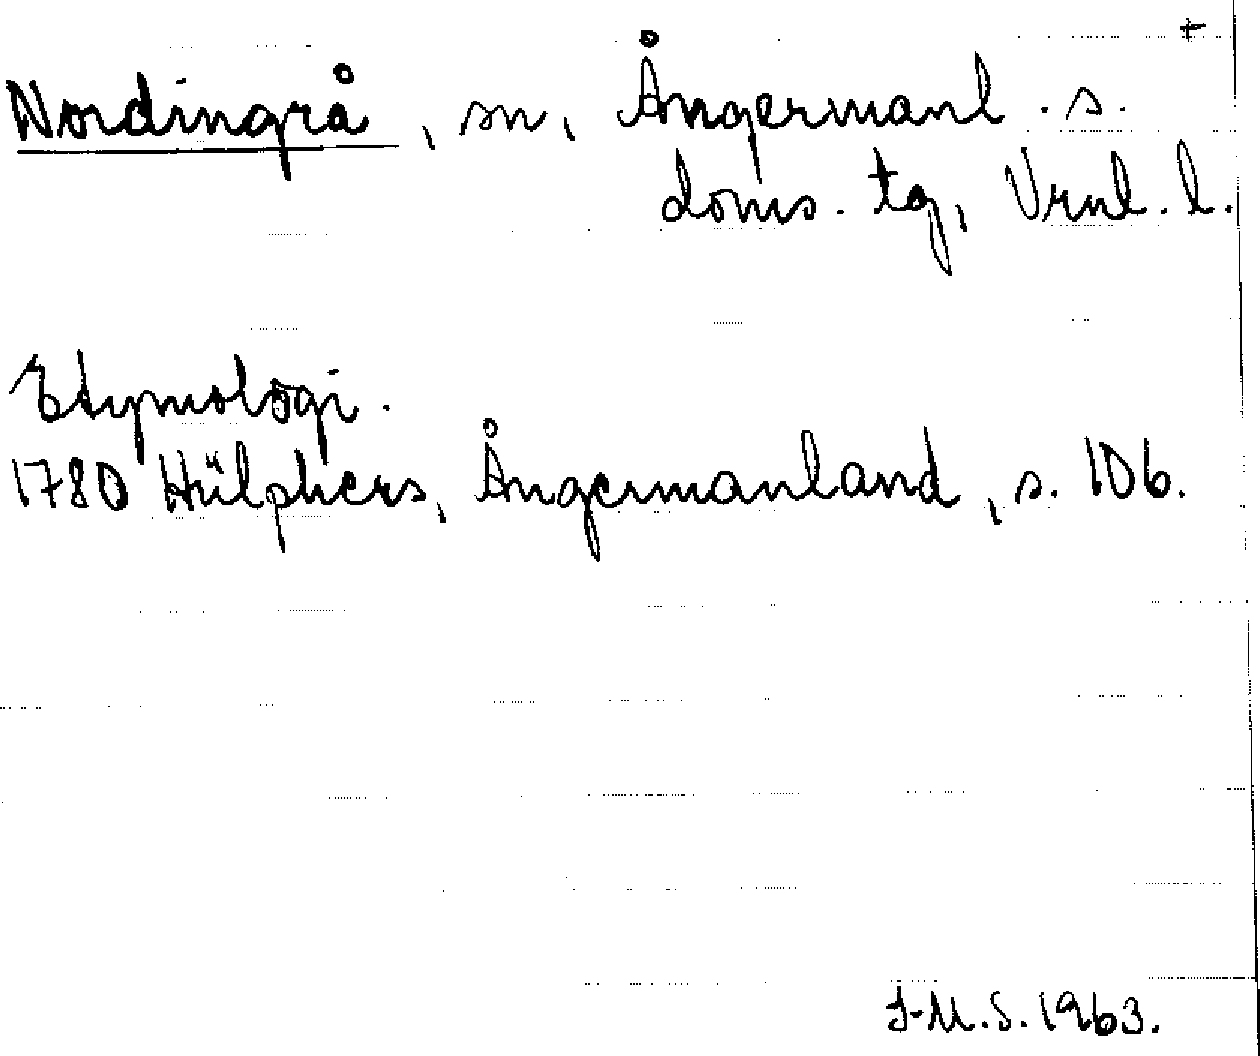 +
Nordingrå, sn, Ångermanl. s.
doms. tg, Vrnl. l.
Etymologi.
1780 Hülphers, Ångermanland, s. 106.
I-M.S. 1963.